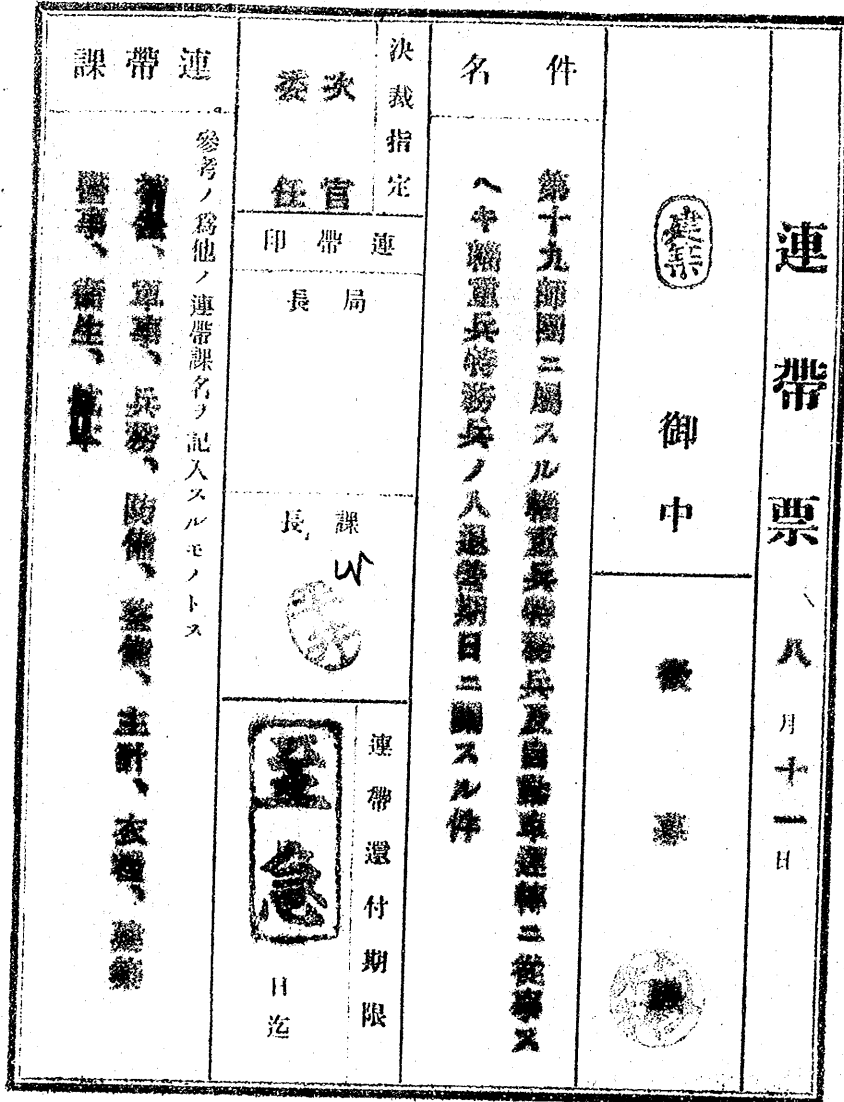 連帶票
八月十一日
建築
御中
件名
第十九師團ニ屬スル輜重兵特務兵及自動車運轉ニ從事ス
ヘキ輜重兵特務兵ノ入退營期日ニ關スル件
決裁指定
次官
委任
連帶印
局長
課長
連帶還付期限
至急
日迄
連帶課
參考ノ爲他ノ連帶課名ヲ記入スルモノトス
補任、軍事、兵務、防備、整備、主計、衣糧、建築
醫事、衞生